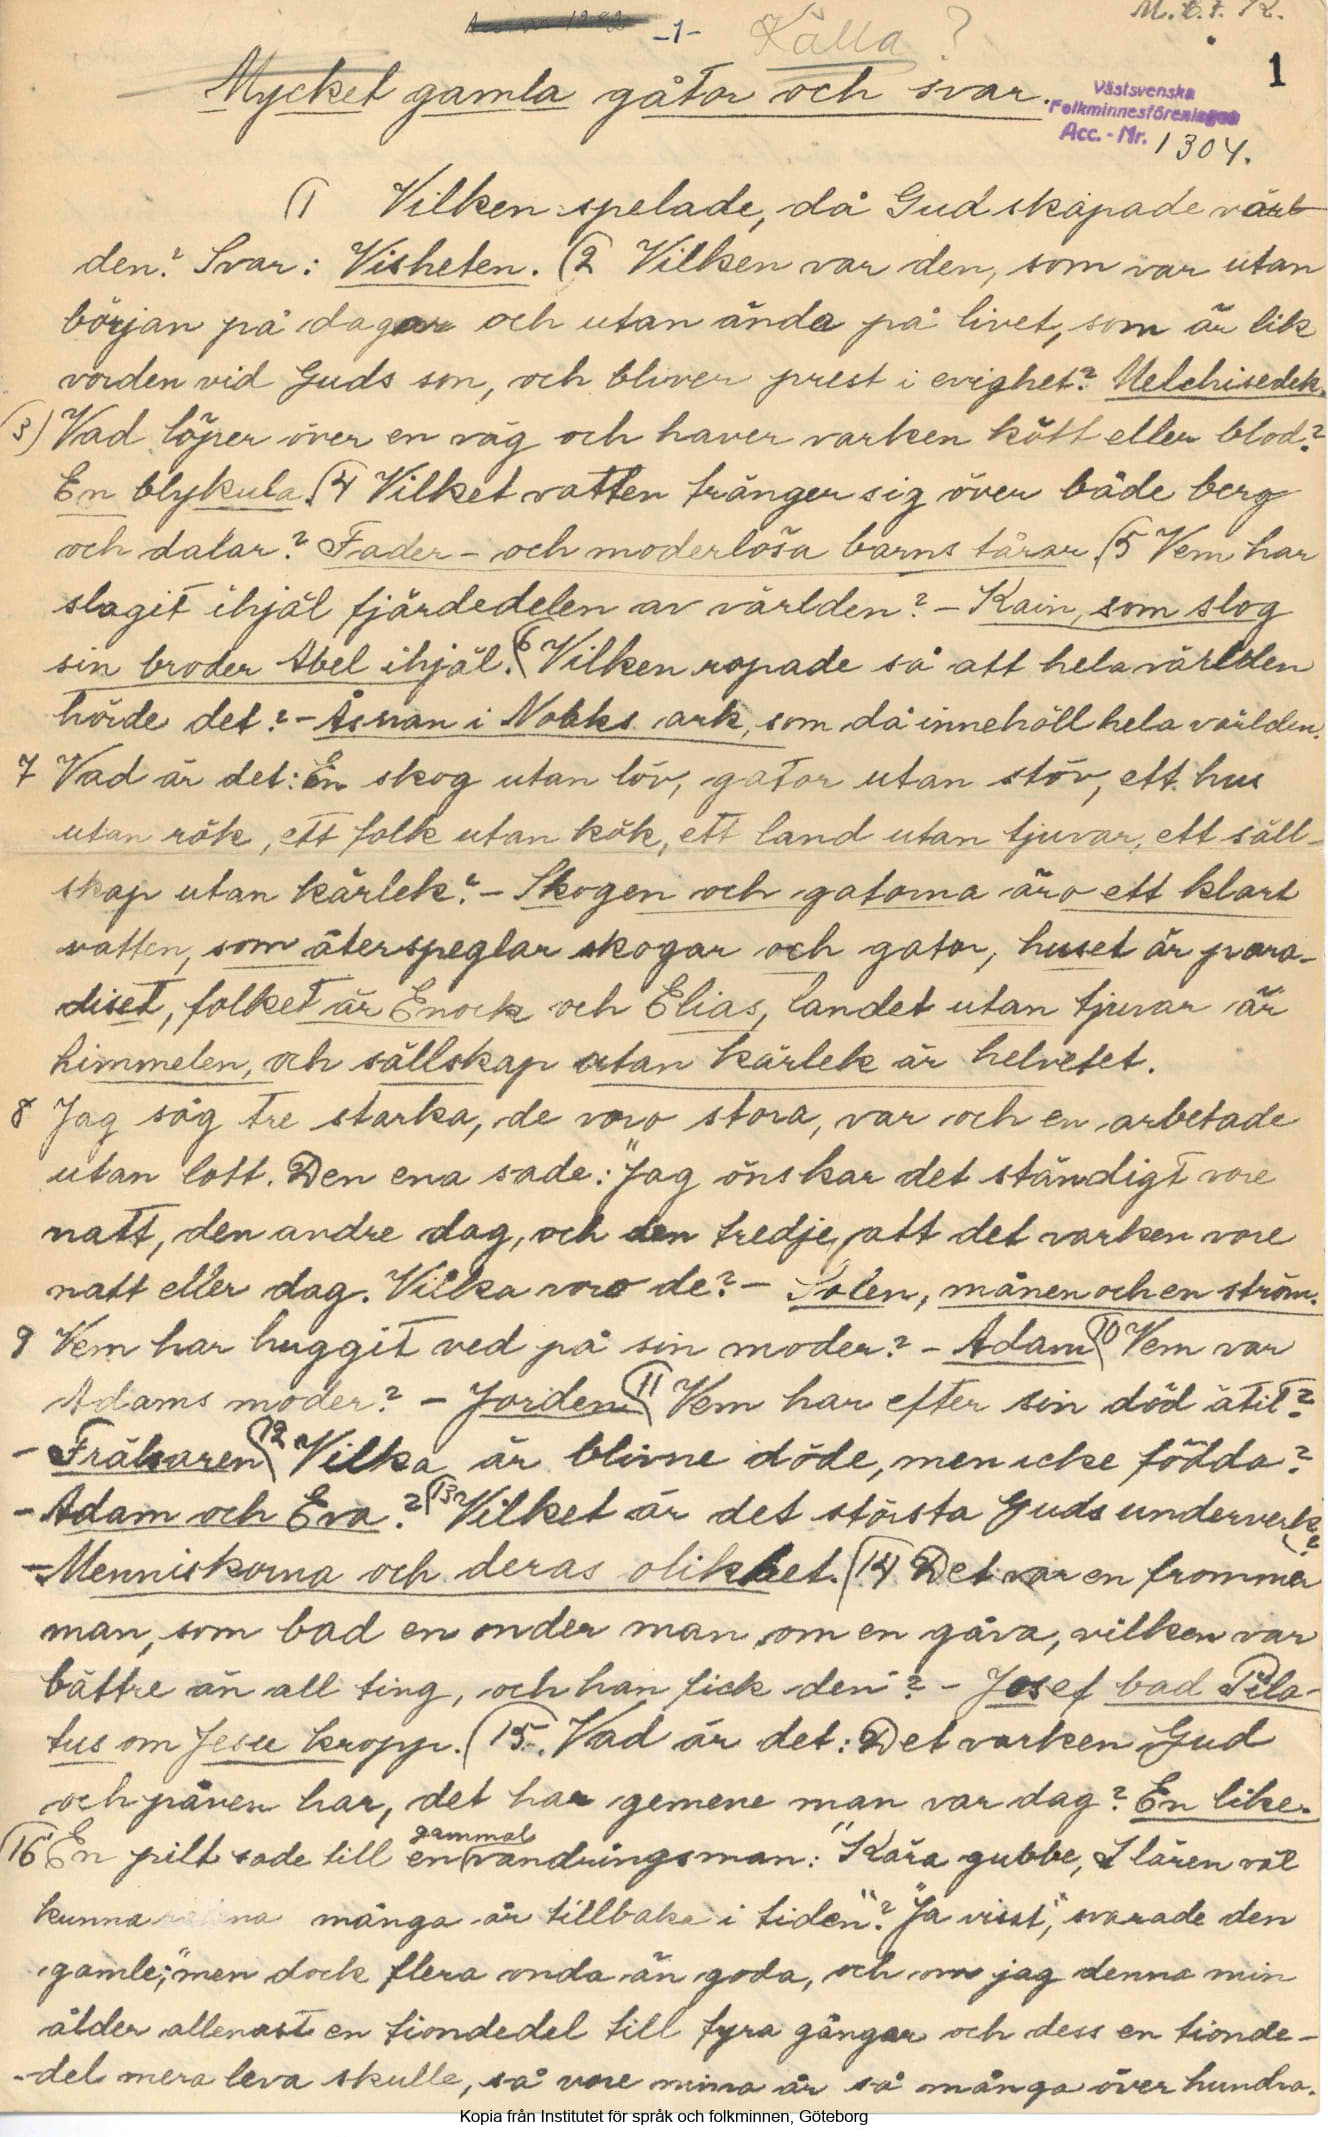 M.t.t. 12.
-1- Källa?
1
Mycket gamla gåtor och svar.
Västsvenska
Folkminnesföreningen
Acc. - Nr. 1304.
(1 Vilken spelade, då Gud skapade värl-
den? Svar: Visheten. (2 Vilken var den, som var utan
början på dagar och utan ända på livet, som är lik
vorden vid Guds son, och bliver prest i evighet? Melchisedek.
(3) Vad löper över en väg och haver varken kött eller blod?
En blykula. (4 Vilket vatten tränger sig över både berg
och dalar? Fader- och moderlösa barns tårar. (5 Vem har
slagit ihjäl fjärdedelen av världen? - Kain, som slog
sin broder Abel ihjäl. (6 Vilken ropade så att hela världen
hörde det? - Åsnan i Noaks ark, som då innehöll hela världen.
7 Vad är det: En skog utan löv, gator utan stöv, ett hus
utan rök, ett folk utan kök, ett land utan tjuvar, ett säll-
skap utan kärlek? - Skogen och gatorna äro ett klart
vatten, som återspeglar skogar och gator, huset är para-
diset, folket är Enock och Elias, landet utan tjuvar är
himmelen, och sällskap utan kärlek är helvetet.
8 Jag såg tre starka, de voro stora, var och en arbetade
utan lott. Den ena sade: "Jag önskar det ständigt vore
natt, den andre dag, och den tredje, att det varken vore
natt eller dag. Vilka voro de? - Solen, månen och en ström.
9 Vem har huggit ved på sin moder? - Adam (10 Vem var
Adams moder? - Jorden. (11 Vem har efter sin död ätit?
- Fråssaren (12 Vilka är blivne döde, men icke födda?
- Adam och Eva? (13 Vilket är det största Guds underverk?
- Menniskorna och deras olikhet. (14 Det var en frommer
man, som bad en onder man om en gåva, vilken var
bättre än all ting, och han fick den? - Josef bad Pila-
tus om Jesu kropp. (15. Vad är det: Det varken Gud
och påven har, det har gemene man var dag? En like.
(16 En pilt sade till en gammal vandringsman: "Kära gubbe, I lären väl
kunna många år tillbaka i tiden"? "Ja visst", svarade den
gamle; "men dock flera onda än goda, och om jag denna min
ålder allenast en tiondedel till fyra gånger och dess en tionde-
-del mera leva skulle, så vore mina år så många över hundra.
Kopia från Institutet för språk och folkminnen, Göteborg